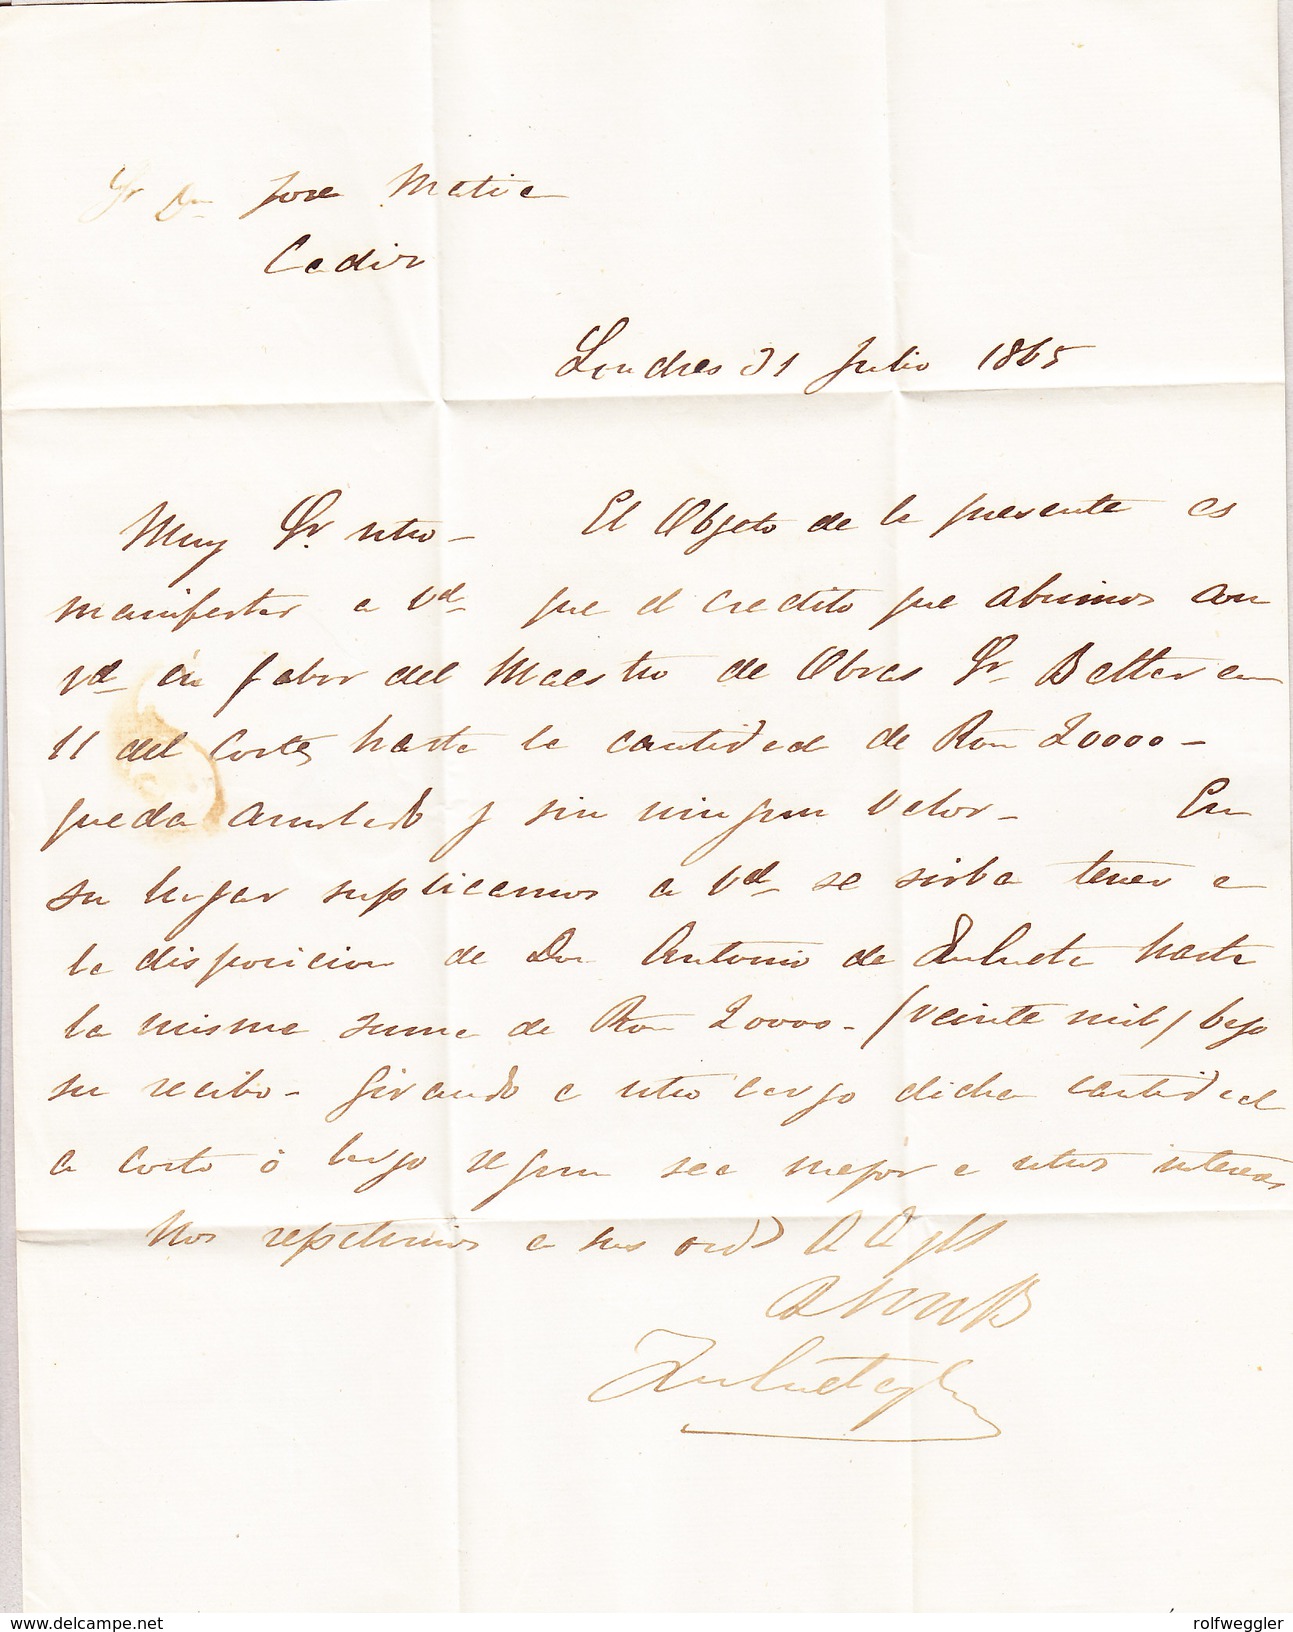 Sr Dn Jose Matia
Cadiz
Londres 31 Julio 1865
Muy Sr. ntro - El Objeto de la presente es
manifestar a Vd que el credito que abrimos con
Vd en fabor del Maestro de Obras Sr Belter en
11 del Corte hasta la cantidad de Rvn 20000 -
queda anulado y sin ningun valor - En
su lugar suplicamos a Vd se sirba tener a
la disposicion de Don Antonio de Zulueta hasta
la misma suma de Rvn 20000 - (veinte mil) bajo
su recibo - Girando a ntro cargo dicha cantidad
a corto ó largo segun sea mejor a ntros interes
Nos repetimos a sus ords
Zulueta y Ca
delcampe.net
rolfweggler